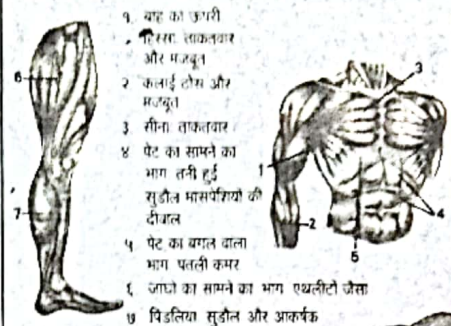 १. बाह का ऊपरी
हिस्सा ताकतवार
और मजबूत
२ कलाई ठोस और
मजबूत
३ सीना ताकतवार
४ पेट का सामने का
भाग तनी हुई
सुडौल मासपेशियों की
दीवाल
५ पेट का बगल वाला
भाग पतली कमर
६ जांघो का सामने का भाग एथलीटों जैसा
७ पिंडलिया सुडौल और आकर्षक
6
7
3
1
2
4
5